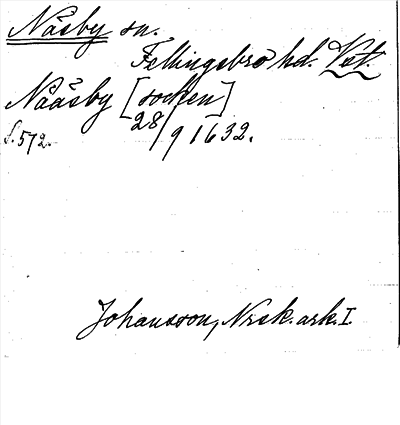 Näsby sn.
Fellingsbro hd. Vstm.
Nääsby [socken]
28/9 1632.
s. 572.
Johansson, Norsk. ark. I